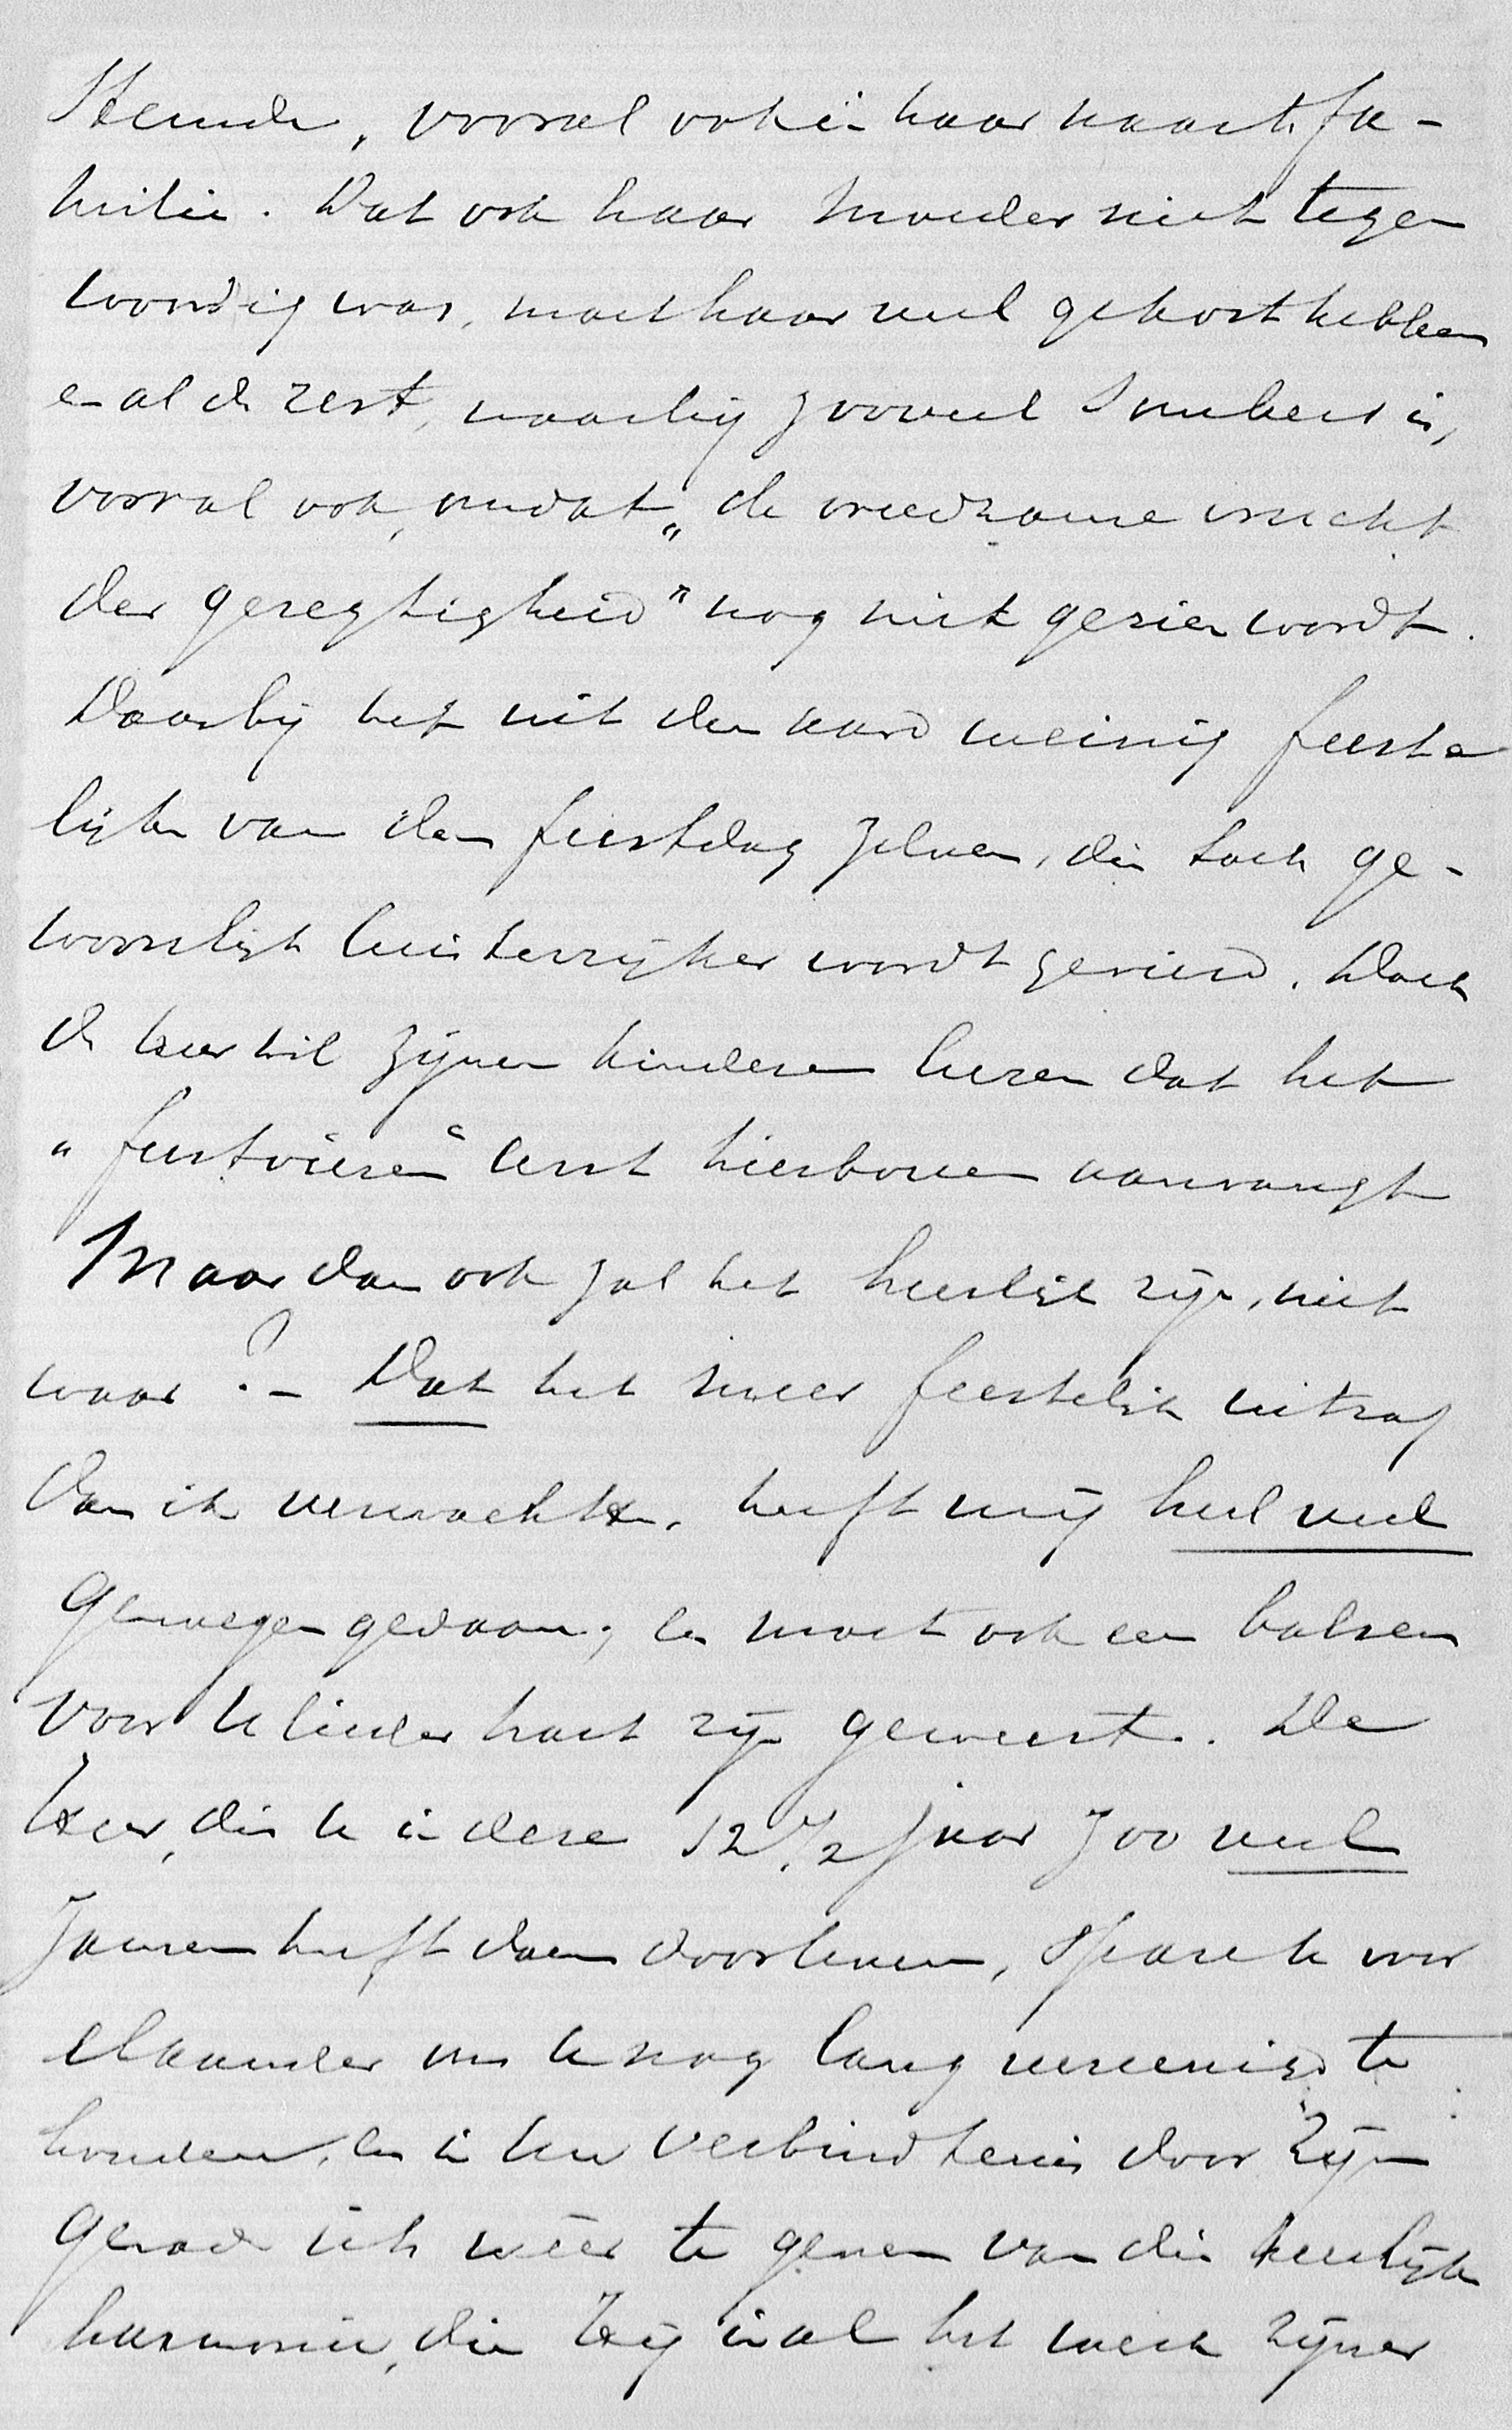 vooral ook in haar naaste fa-
milie. Dat ook haar moeder niet tegen
woordig was, moet haar veel gekost hebben
en al de rest, waarbij zooveel is,
vooral ook, omdat „de vreedzame vrucht
der geregtigheid" nog niet gezien wordt.
Daarbij het uit den aard weinig feeste
lijke van den feestdag zelven, die toch ge-
woonlijk luisterrijker wordt gevierd. Doch
de Heer wil zijnen kinderen leeren dat het
„feestvieren" eerst hierboven aanvangt
Maar dan ook zal het heerlijk zijn, niet
waar? - Dat het meer feestelijk uitzag
dan ik verwachtte, heeft mij heel veel
genoegen gedaan; en moet ook een balsem
voor U lieder hart zijn geweest. De
Heer, die U in deze 12 1/2 jaar zoo veel
zamen heeft doen doorleven, spare U voor
elkander om U nog lang vereenigd te
houden, en in Uw verbindtenis door Zijn
genade iets wéér te geven van die heerlijke
harmonie, die Hij in al het werk zijner